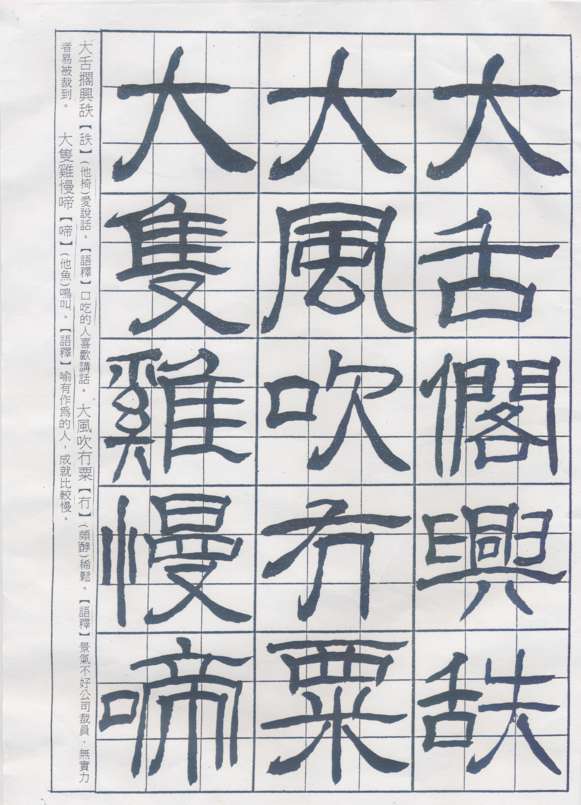 大舌㩼興詄
大風吹冇粟
大隻雞慢啼
大舌擱興詄【詄】(他椅)愛說話。【語釋】口吃的人喜歡講話。大風吹冇粟【冇】(頗醪)稀鬆。【語釋】景氣不好公司裁員，無實力
者易被裁到。大隻雞慢啼【啼】(他魚)鳴叫。【語釋】喻有作為的人，成就比較慢。